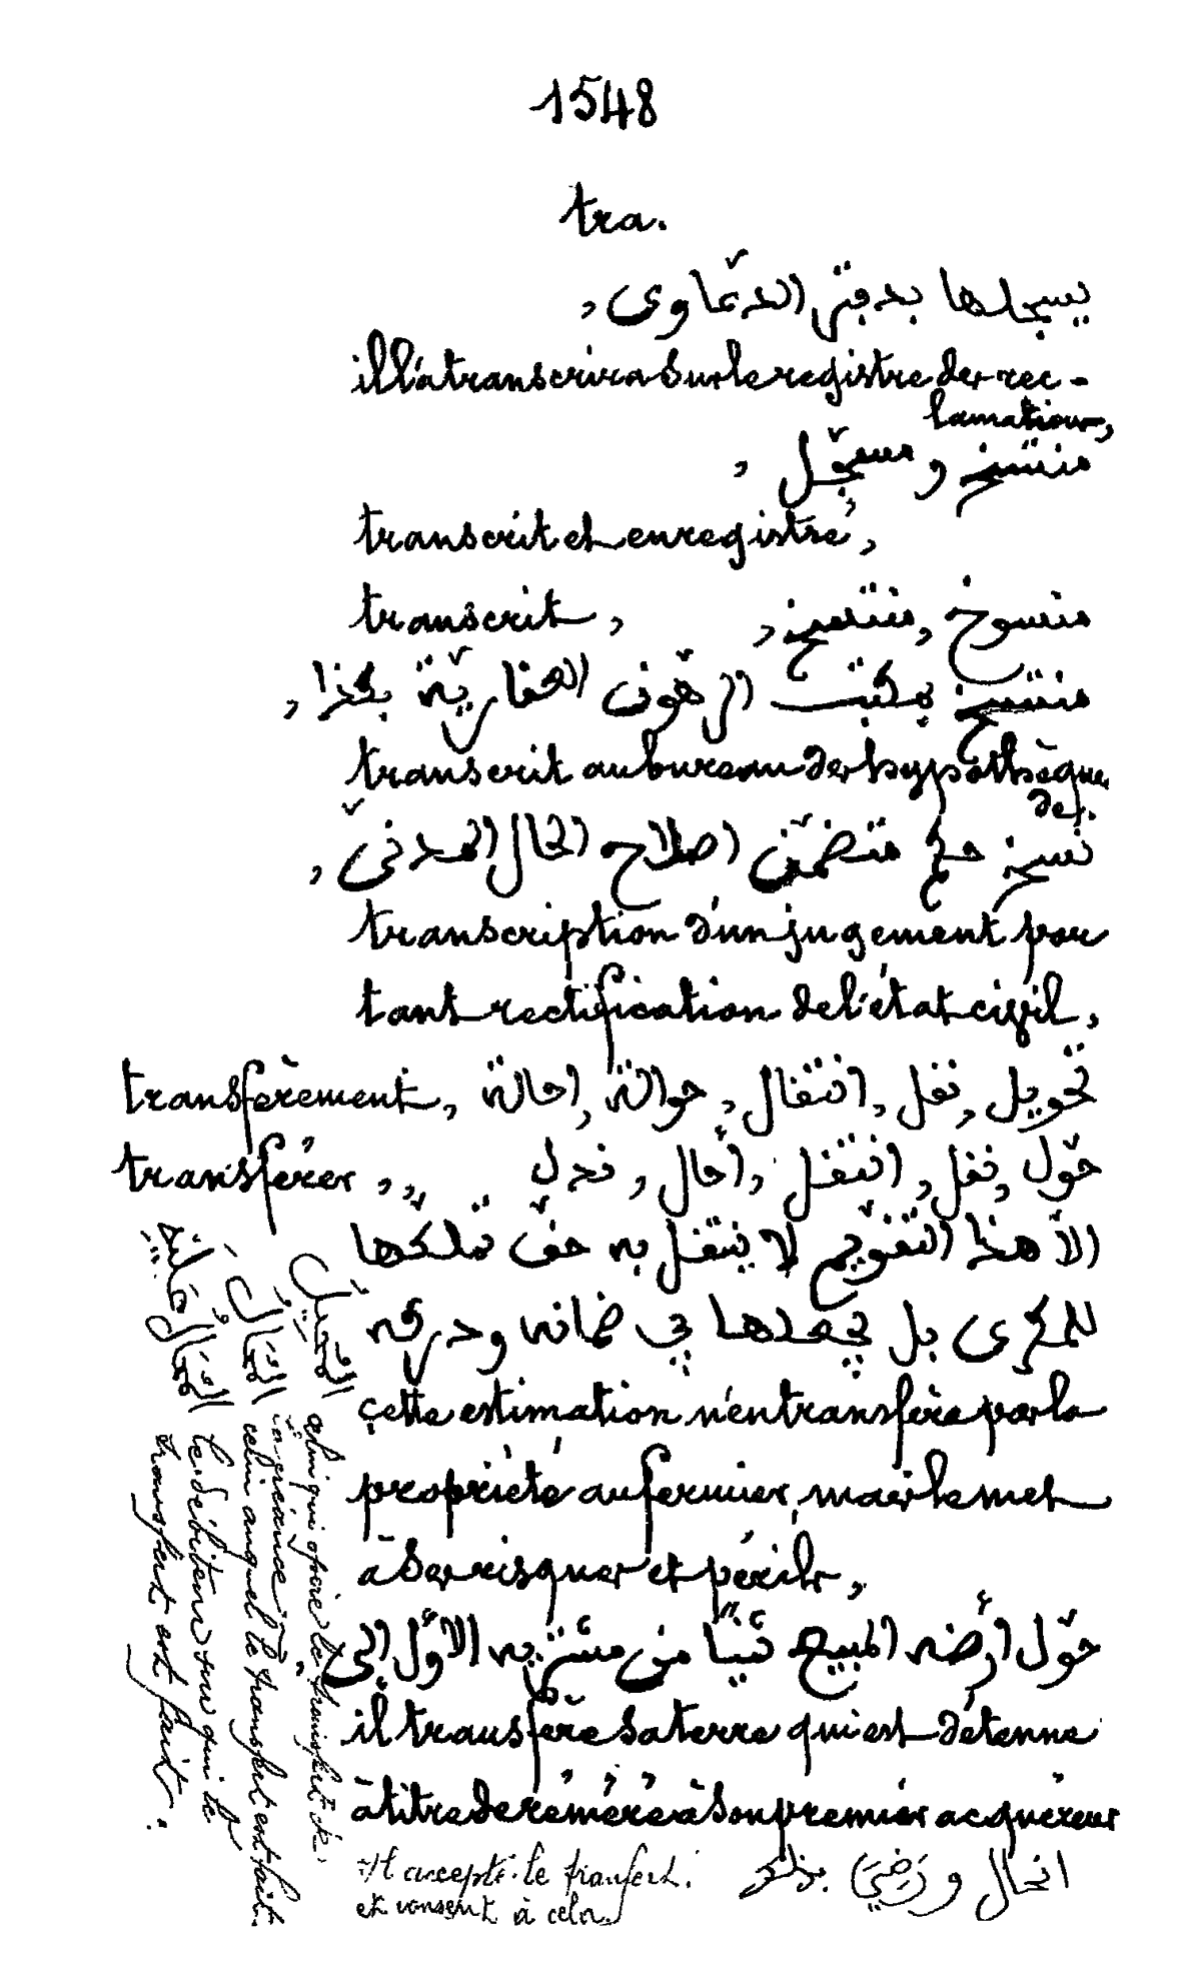 1548
tra.
يسجلها بدفتر الدعاوى,
il la transcrira sur le registre des rec-
lamations,
منتسخ و مسجّل ,
transcrit et enregistré,
transcrit, منسوخ, منتسخ,
منتسخ بمكتب الرهون العقاريّة بكذا,
transcrit au bureau des hypothèques
de.
نسخ حكم متضمّن اصلاح الحال المدنى,
transcription d'un jugement por
tant rectification de l'état civil,
transfèrement, تحويل, نقل, انتقال, حوالة, احالة,
transférer, حوّل, نقل, انتقل, أحال,
الاّ هذا التقويم لا ينتقل به حقّ تملكها
للمكرى بل يجعلها في ضمانه ودركه
cette estimation n'en transfère pas la
propriété au fermier, mais le met
à ses risques et périls,
حوّل ارضه المبيع ثنيًا من مشتريه الاوّل إلى
il transfère sa terre qui est détenue
à titre de réméré à son premier acquéreur
انحال و رَضِيَ بذلك
Il accepte le transfert.
et consent à cela.
المُحِيلُ celui qui opère le transfert de
sa créance.
المُحَالُ celui auquel le transfert est fait.
المُحَالُ عَلَيْهِ le débiteur sur qui le
transfert est fait.